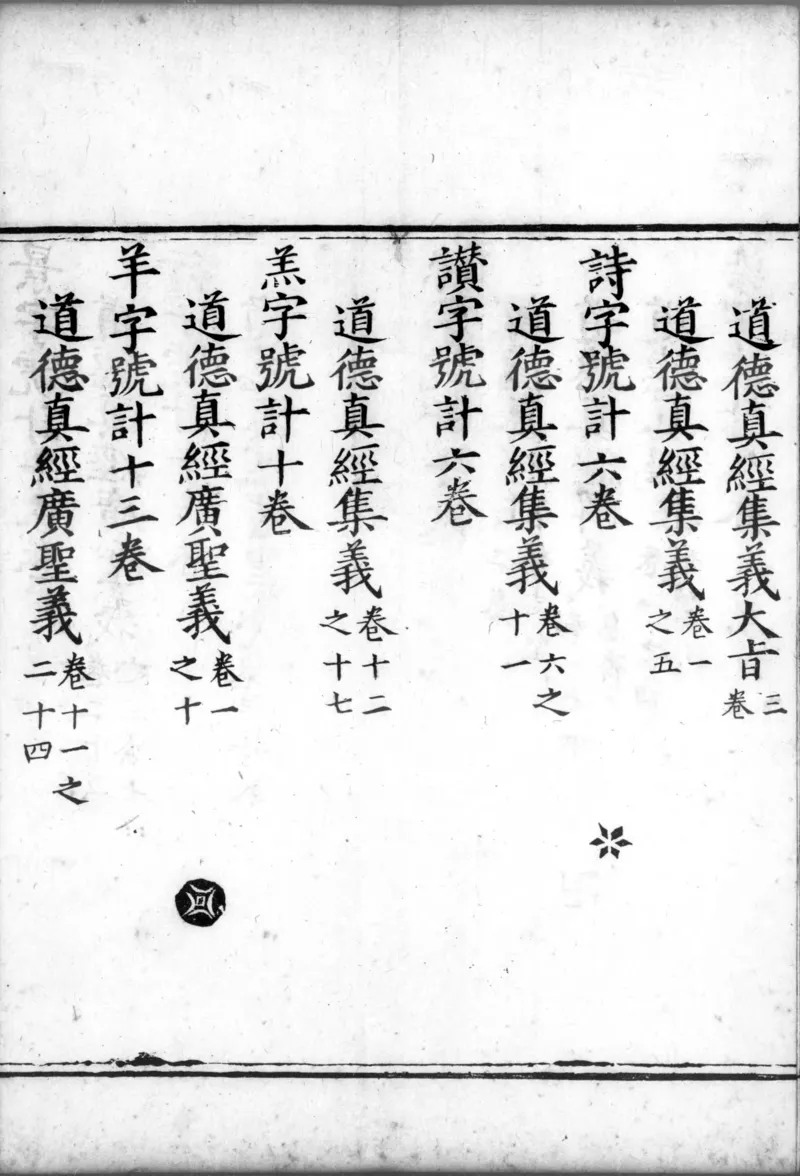 道德真經集義大旨三卷
道德真經集義卷一之五
詩字號計六卷
道德真經集義卷六之十一
讚字號計六卷
道德真經集義卷十二之十七
羔字號計十卷
道德真經廣聖義卷一之十
羊字號計十三卷
道德真經廣聖義卷十一之二十四